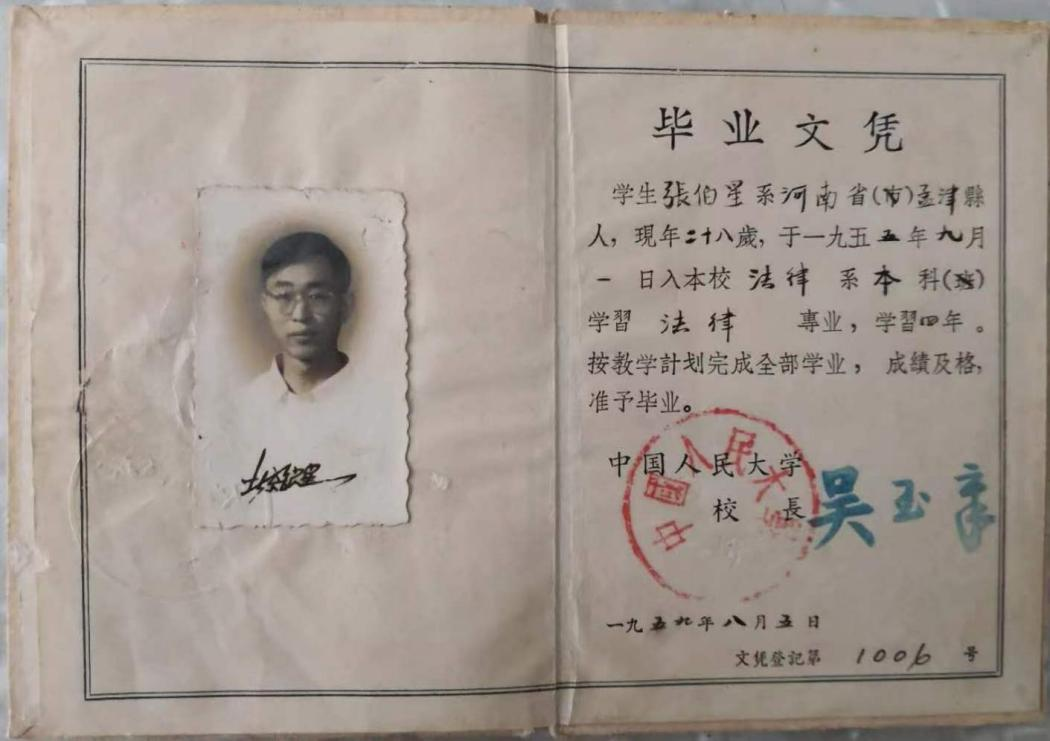 毕业文凭
学生張伯星系河南省(市)孟津縣
人，現年二十八歲，于一九五五年九月
一日入本校法律系本科(班)
学習法律專业，学習四年。
按教学計划完成全部学业，成績及格，
准予毕业。
中国人民大学
校長吴玉章
中国人民大学
一九五九年八月五日
文凭登記第1006号